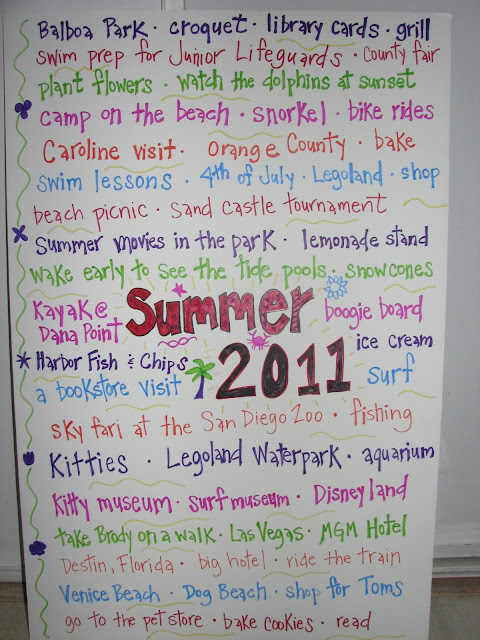 Balboa Park · croquet · library cards · grill
swim prep for Junior Lifeguards · county fair
plant flowers · watch the dolphins at sunset
camp on the beach · snorkel · bike rides
Caroline visit · Orange County · bake
swim lessons · 4th of July · Legoland · shop
beach picnic · sand castle tournament
Summer movies in the park · lemonade stand
wake early to see the tide pools · snowcones
Kayak @
Dana Point
Summer
boogie board
ice cream
Harbor Fish & Chips
2011
a bookstore visit
surf
sky fari at the San Diego Zoo · fishing
Kitties · Legoland Waterpark · aquarium
Kitty museum · surf museum · Disneyland
take Brody on a walk · Las Vegas · MGM Hotel
Destin, Florida · big hotel · ride the train
Venice Beach · Dog Beach · shop for Toms
go to the pet store · bake cookies · read